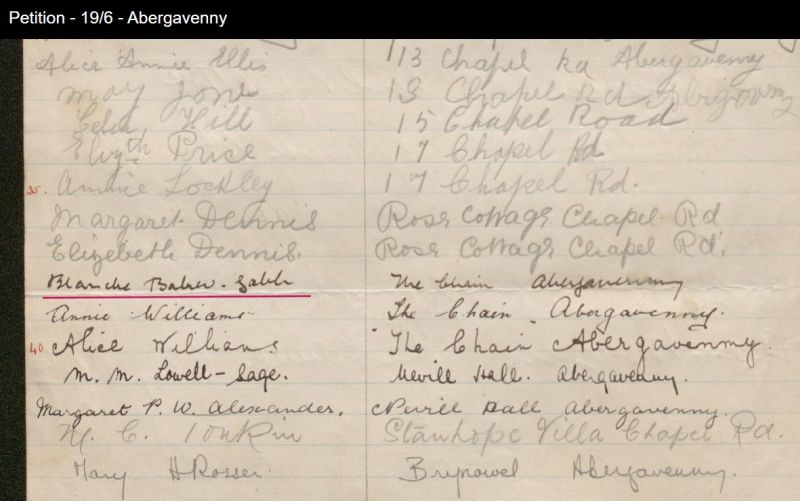 Petition - 19/6 - Abergavenny
Alice Annie Ellis 113 Chapel Rd Abergavenny
May Jone 13 Chapel Rd Abergavenny
Celia Hill 15 Chapel Road
Price 17 Chapel Rd
35. Annie Lockley 17 Chapel Rd.
Margaret Dennis Rose Cottage Chapel Rd
Elizebeth Dennis. Rose Cottage Chapel Rd.
Blanche The Chain Abergavenny
Annie Williams The Chain. Abergavenny.
40 Alice Williams The Chain Abergavenny.
M. M. Lowell-Sage. Nevill Hall. Abergavenny.
Margaret P. W. Alexander. Nevill Hall Abergavenny.
M. C. Tonkin Stanhope Villa Chapel Rd.
Mary H Rosser. Brynowel Abergavenny.